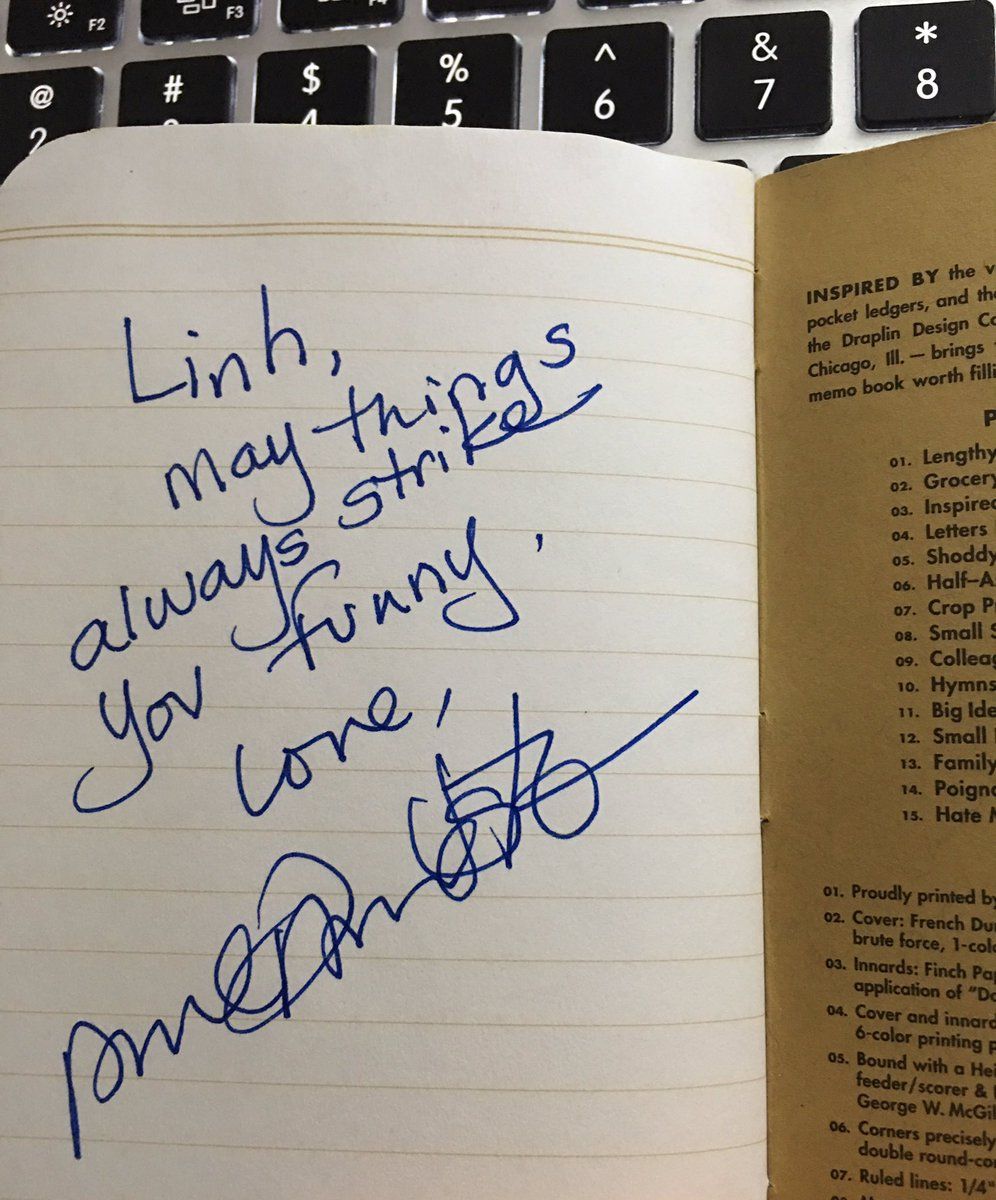 F2
F3
F4
@
2
#
$
4
%
5
^
6
&
7
*
8
Linh,
may things
always strike
you funny.
love,
INSPIRED BY the
pocket ledgers, and the
the Draplin Design Co
Chicago, Ill. — brings
memo book worth filli
P
01. Lengthy
02. Grocery
03. Inspired
04. Letters
05. Shoddy
06. Half-A
07. Crop P
08. Small S
09. Colleag
10. Hymns
11. Big Ide
12. Small
13. Family
14. Poigna
15. Hate M
01. Proudly printed by
02. Cover: French Du
brute force, 1-colo
03. Innards: Finch Pa
application of "Do
04. Cover and innard
6-color printing p
05. Bound with a Hei
feeder/scorer &
George W. McGil
06. Corners precisely
double round-co
07. Ruled lines: 1/4"